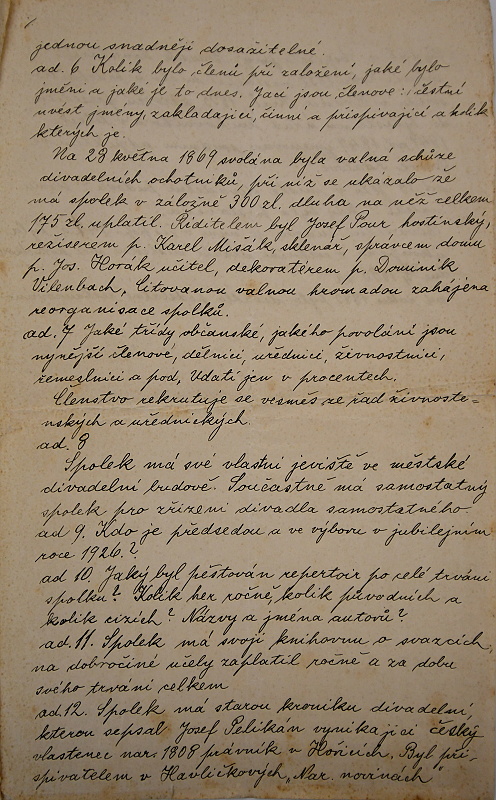 jednou snadněji dosažitelné.
ad. 6 Kolik bylo členů při založení, jaké bylo
jmění a jaké je to dnes. Jací jsou členové: čestní
uvést jmény, zakladající, činní a přispívající a kolik
kterých je.
Na 28 května 1869 svolána byla valná schůze
divadelních ochotníků, při níž se ukázalo že
má spolek v záložně 300 zl. dluhu na něž celkem
175 zl. uplatil. Řiditelem byl Josef Pour hostinský,
reziserem p. Karel Mišák, sklenář, správcem domu
p. Jos. Horák učitel, dekoratérem p. Dominik
Vilenbach, Citovanou valnou hromadou zahájena
reorganisace spolků.
ad. 7 Jaké třídy občanské, jakého povolání jsou
nynější členové, dělníci, uředníci, živnostníci,
řemeslníci a pod, Udati jen v procentech.
Členstvo rekrutuje se vesměs ze řad živnoste=
nských a uřednických.
ad. 8
Spolek má své vlastní jeviště ve městské
divadelní budově. Součastně má samostatný
spolek pro zřízení divadla samostatného.
ad 9. Kdo je předsedou a ve výboru v jubilejním
roce 1926.?
ad 10. Jaký byl pěstován repertoir po celé trvání
spolku? Kolik her ročně, kolik původních a
kolik cizích? Názvy a jména autorů?
ad. 11. Spolek má svoji knihovnu o svazcích,
na dobročiné učely zaplatil ročně a za dobu
svého trvání celkem
ad. 12. Spolek má starou kroniku divadelní,
kterou sepsal Josef Pelikán vynikající český
vlastenec nar. 1808 právník v Hořicích. Byl při-
spivatelem v Havlíčkových „Nar. novinách"